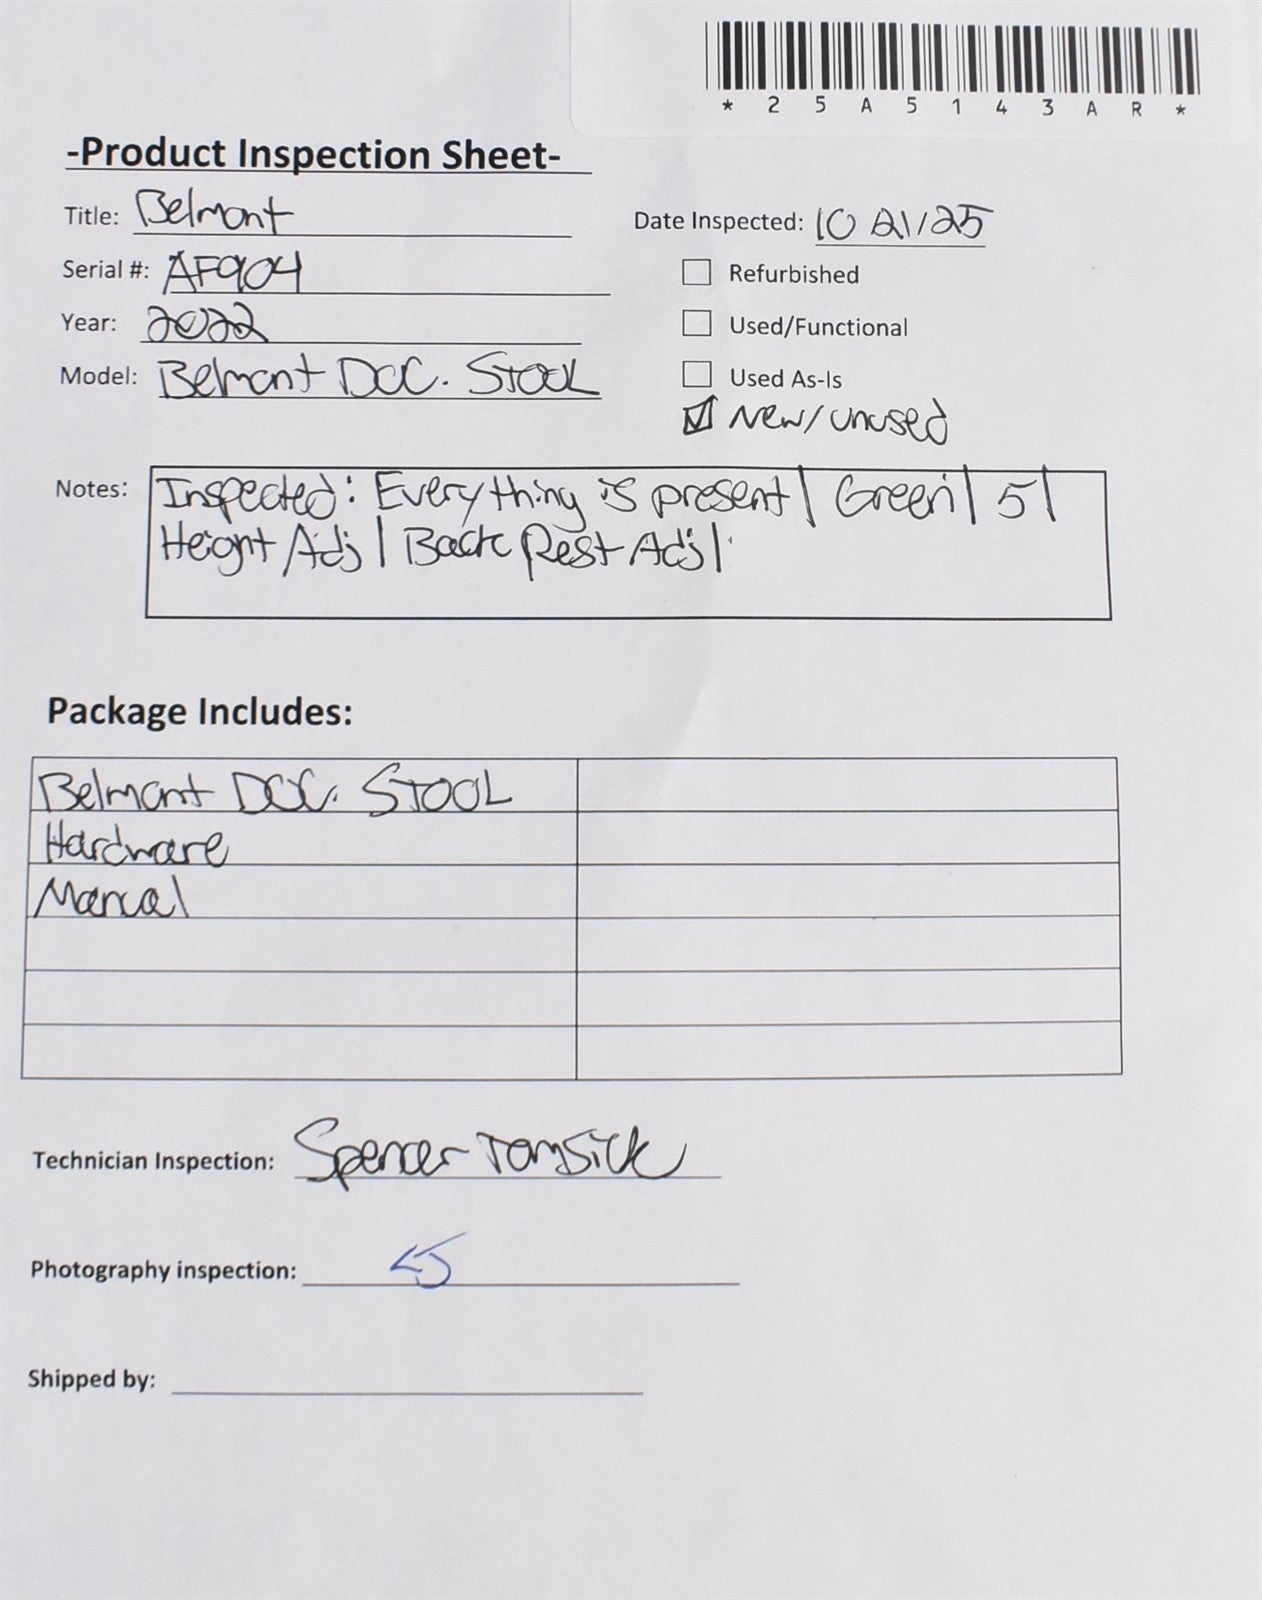 *25A5143AR*
-Product Inspection Sheet-
Title: Belmont
Date Inspected: 10 21/25
Serial #: AF904
Refurbished
Year: 2022
Used/Functional
Model: Belmont DOC. STOOL
Used As-Is
New/unused
Notes: Inspected: Everything is present | Green | 5 |
Height Adj | Back Rest Adj |
Package Includes:
Belmont DOC. STOOL
Hardware
Manual
Technician Inspection: Spencer Tomsick
Photography inspection:
Shipped by: